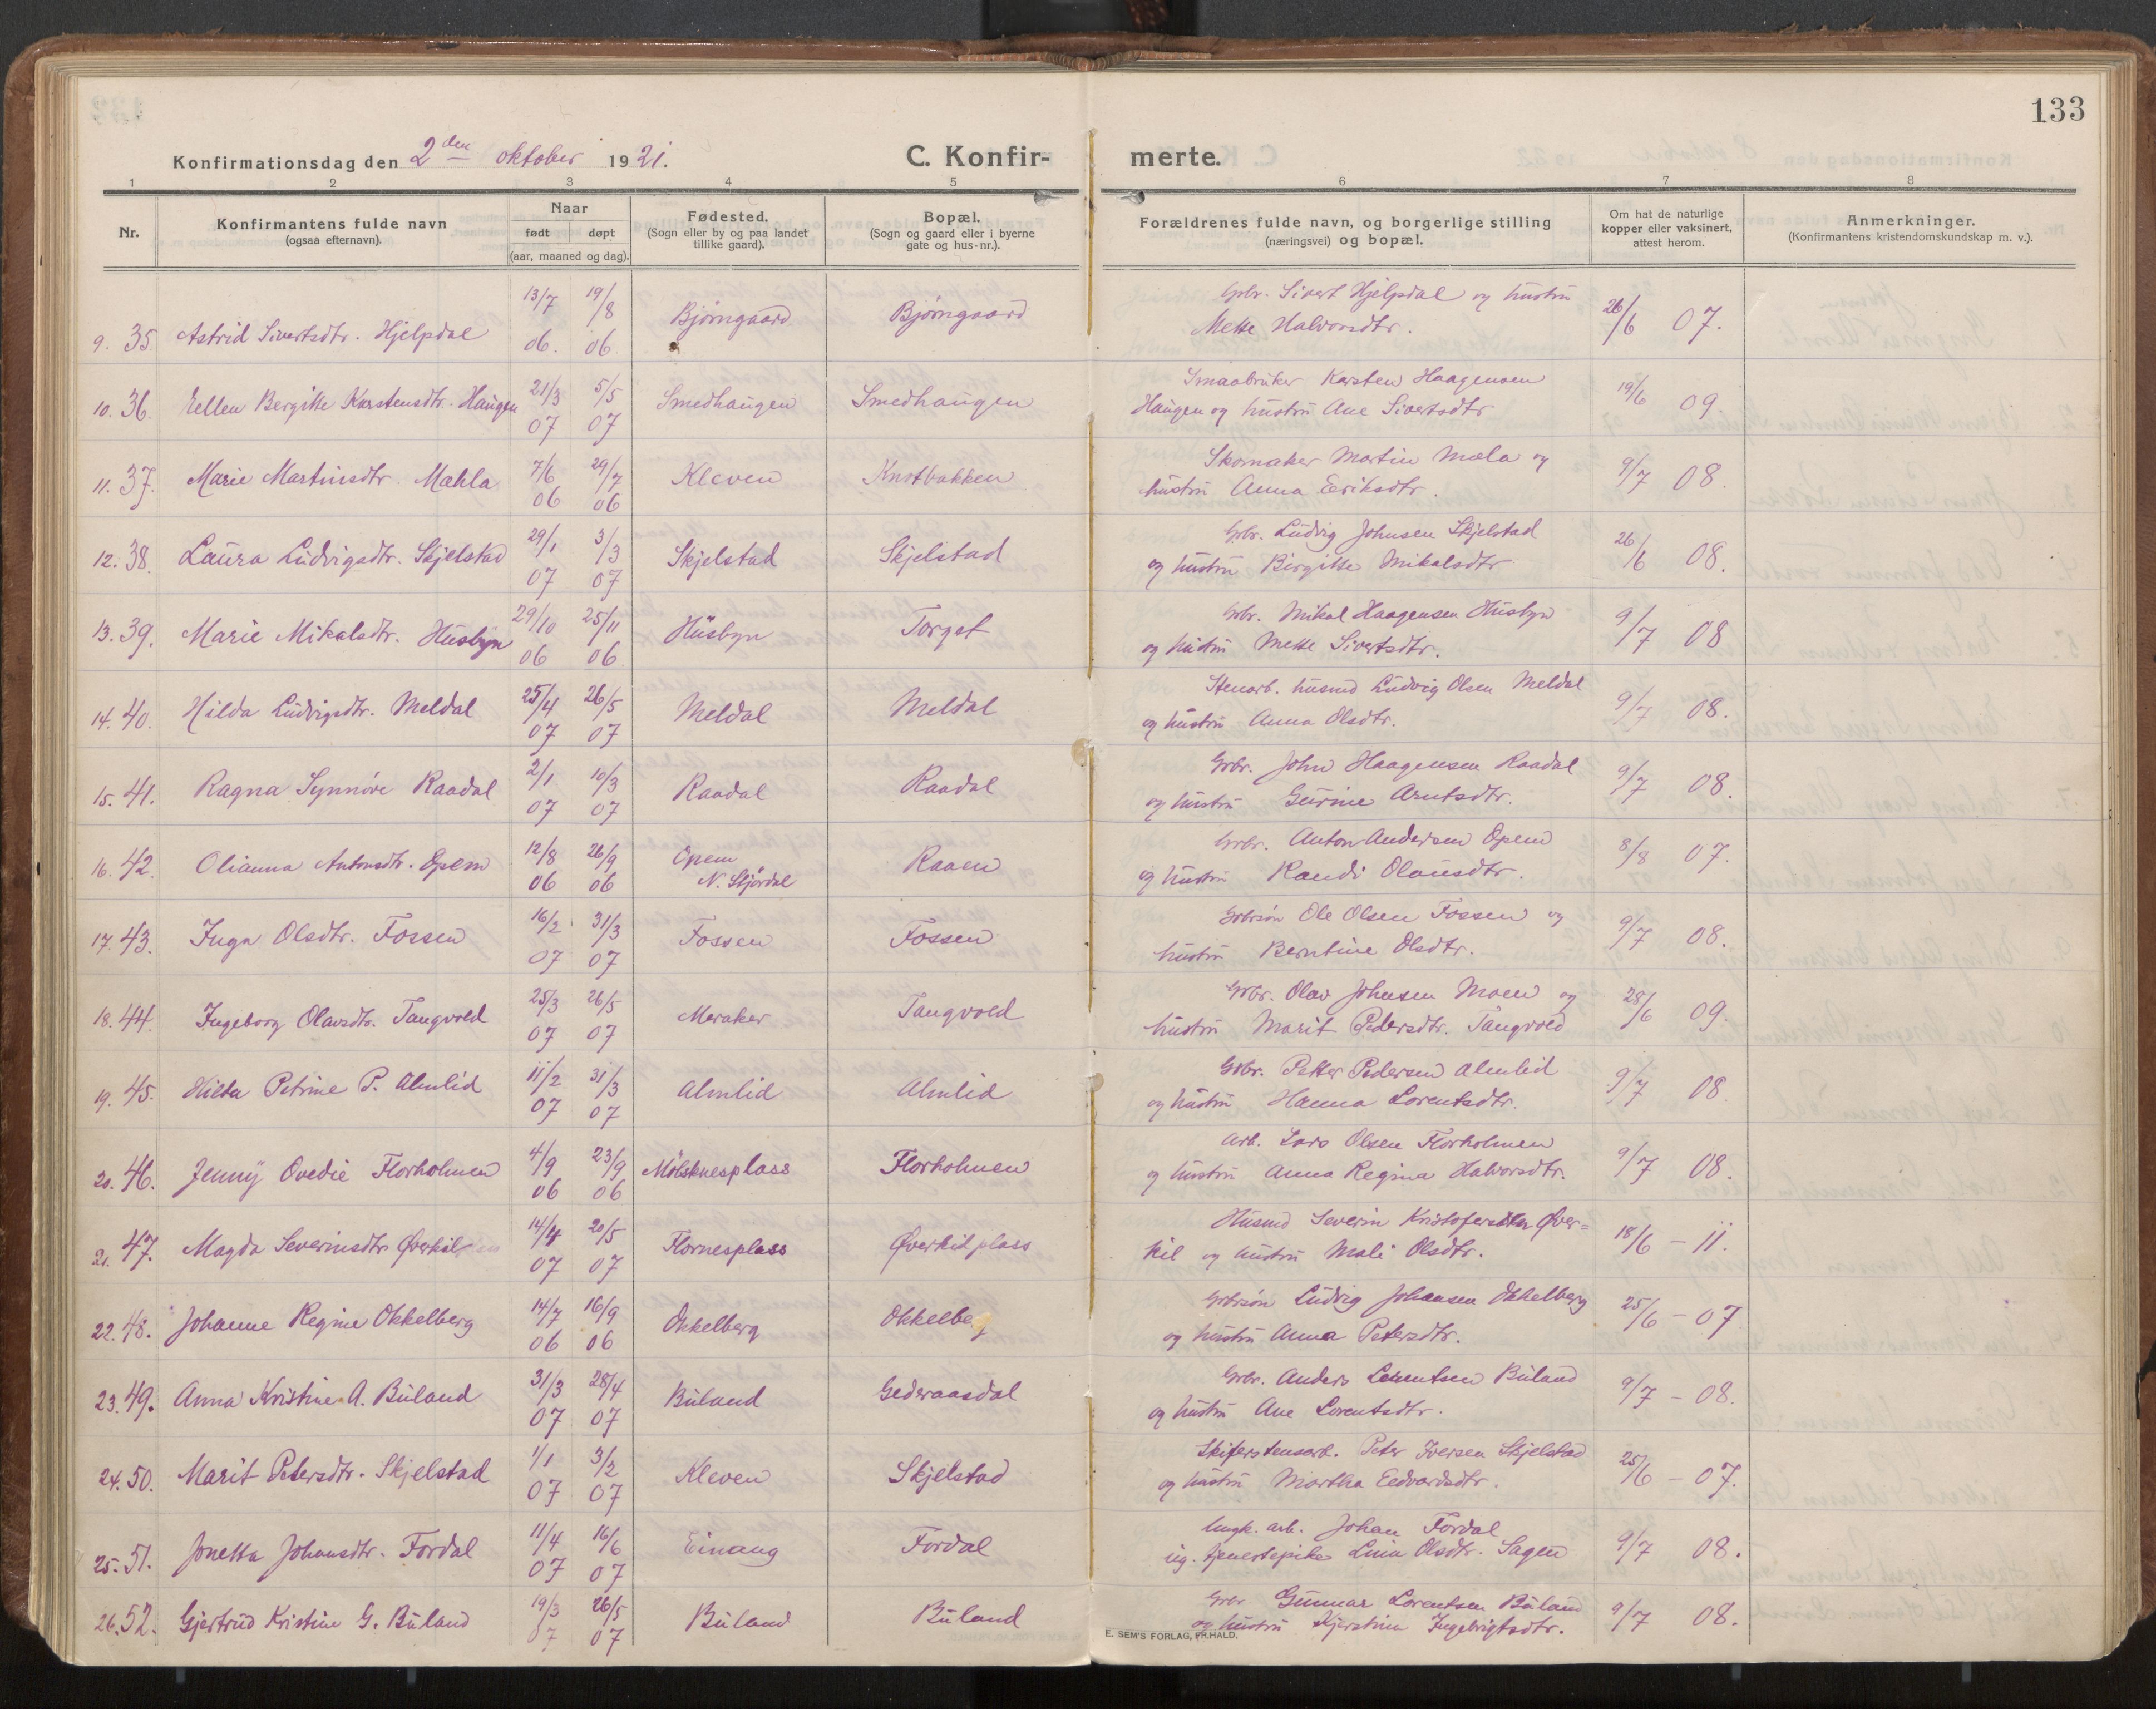 133
Konfirmationsdag den 2den oktober 1921.
C. Konfirmerte.
1 2 3 4 5 6 7 8
Nr.
Konfirmantens fulde navn
(ogsaa efternavn).
Naar
født døpt
(aar, maaned og dag).
Fødested.
(Sogn eller by og paa landet
tillike gaard).
Bopæl.
(Sogn og gaard eller i byerne
gate og hus-nr.).
Forældrenes fulde navn, og borgerlige stilling
(næringsvei) og bopæl.
Om hat de naturlige
kopper eller vaksinert,
attest herom.
Anmerkninger.
(Konfirmantens kristendomskundskap m. v.).
9. 35. Astrid Sivertsdtr. Hjelpdal 13/7 06. 19/8 06. Bjørngaard Bjørngaard Grbr. Sivert Hjelpdal og hustru
Mette Halvorsdtr. 26/6 07.
10. 36. Eellen Bergitte Karstensdtr. Haugen 21/3 07 5/5 07 Smedhaugen Smedhaugen Smaabruker Karsten Haagensen
Haugen og hustru Ane Sivertsdtr 19/6 09.
11. 37. Marie Martinsdtr. Mæhla 7/6 06 29/7 06 Kleven Knotbakken Skomaker Martin Mæla og
hustru Anna Eriksdtr. 9/7 08.
12. 38. Laura Ludvigsdtr. Skjelstad 29/1 07 3/3 07 Skjelstad Skjelstad Grbr. Ludvig Johnsen Skjelstad
og hustru Birgitte Mikalsdtr 26/6 08.
13. 39. Marie Mikalsdtr. Husbyn 29/10 06 25/11 06 Husbyn Torget Grbr. Mikal Haagensen Husbyn
og hustru Mette Sivertsdtr. 9/7 08
14. 40. Hilda Ludvigsdtr. Meldal 25/4 07 26/5 07 Meldal Meldal Stenarb. husmd Ludvig Olsen Meldal
og hustru Anna Olsdtr. 9/7 08.
15. 41. Ragna Synnøve Raadal 2/1 07 10/3 07 Raadal Raadal Grbr. John Haagensen Raadal
og hustru Gurine Arntsdtr. 9/7 08.
16. 42. Olianna Antonsdtr. Opem 12/8 06 26/9 06 Opem N. Stjørdal Raaen Grbr. Anton Andersen Opem
og hustru Randi Olausdtr. 8/8 07.
17. 43. Inga Olsdtr. Fossen 16/2 07 31/3 07 Fossen Fossen Grbrsøn Ole Olsen Fossen og
hustru Berntine Olsdtr. 9/7 08.
18. 44. Ingeborg Olavsdtr. Tangvold 25/3 07 26/5 07 Meraker Tangvold Grbr. Olav Johnsen Moen og
hustru Marit Pedersdtr. Tangvold 28/6 09.
19. 45. Hilda Petrine P. Almlid 11/2 07 31/3 07 Almlid Almlid Grbr. Petter Pedersen Almlid
og hustru Hanna Lorentsdtr. 9/7 08.
20. 46. Jenny Ovedie Florholmen 4/9 06 23/9 06 Mølsknesplass Florholmen Arb. Lars Olsen Florholmen
og hustru Anna Regina Halvorsdtr. 9/7 08.
21. 47. Magda Severinsdtr Øverkil 14/4 07 20/5 07 Flornesplass Øverkil plass Husmd Severin Kristofersen Øver=
kil og hustru Mali Olsdtr. 18/6 - 11.
22. 48. Johanne Regine Okkelberg 14/7 06 16/9 06 Okkelberg Okkelberg Grbrsøn Ludvig Johansen Okkelberg
og hustru Anna Petersdtr. 25/6 - 07
23. 49. Anna Kristine A. Buland 31/3 07 28/4 07 Buland Gederaasdal Grbr. Anders Lorentsen Buland
og hustru Ane Lorentsdtr. 9/7 - 08.
24. 50. Marit Petersdtr. Skjelstad 1/1 07 3/2 07 Kleven Skjelstad Skiferstensarb. Peter Iversen Skjelstad
og hustru Martha Eedvardsdtr. 25/6 - 07.
25. 51. Jonetta Johansdtr. Fordal 11/4 07 16/6 07 Einang Fordal Ungk. arb. Johan Fordal
ug. tjenestepike Lina Olsdtr. Sagen 9/7 08.
26. 52. Gjertrud Kristine G. Buland 19/3 07 26/5 07 Buland Buland Grbr Gunnar Lorentsen Buland
og hustru Kjerstina Ingebrigtsdtr. 9/7 08.
E. SEM'S FORLAG, FR.HALD.